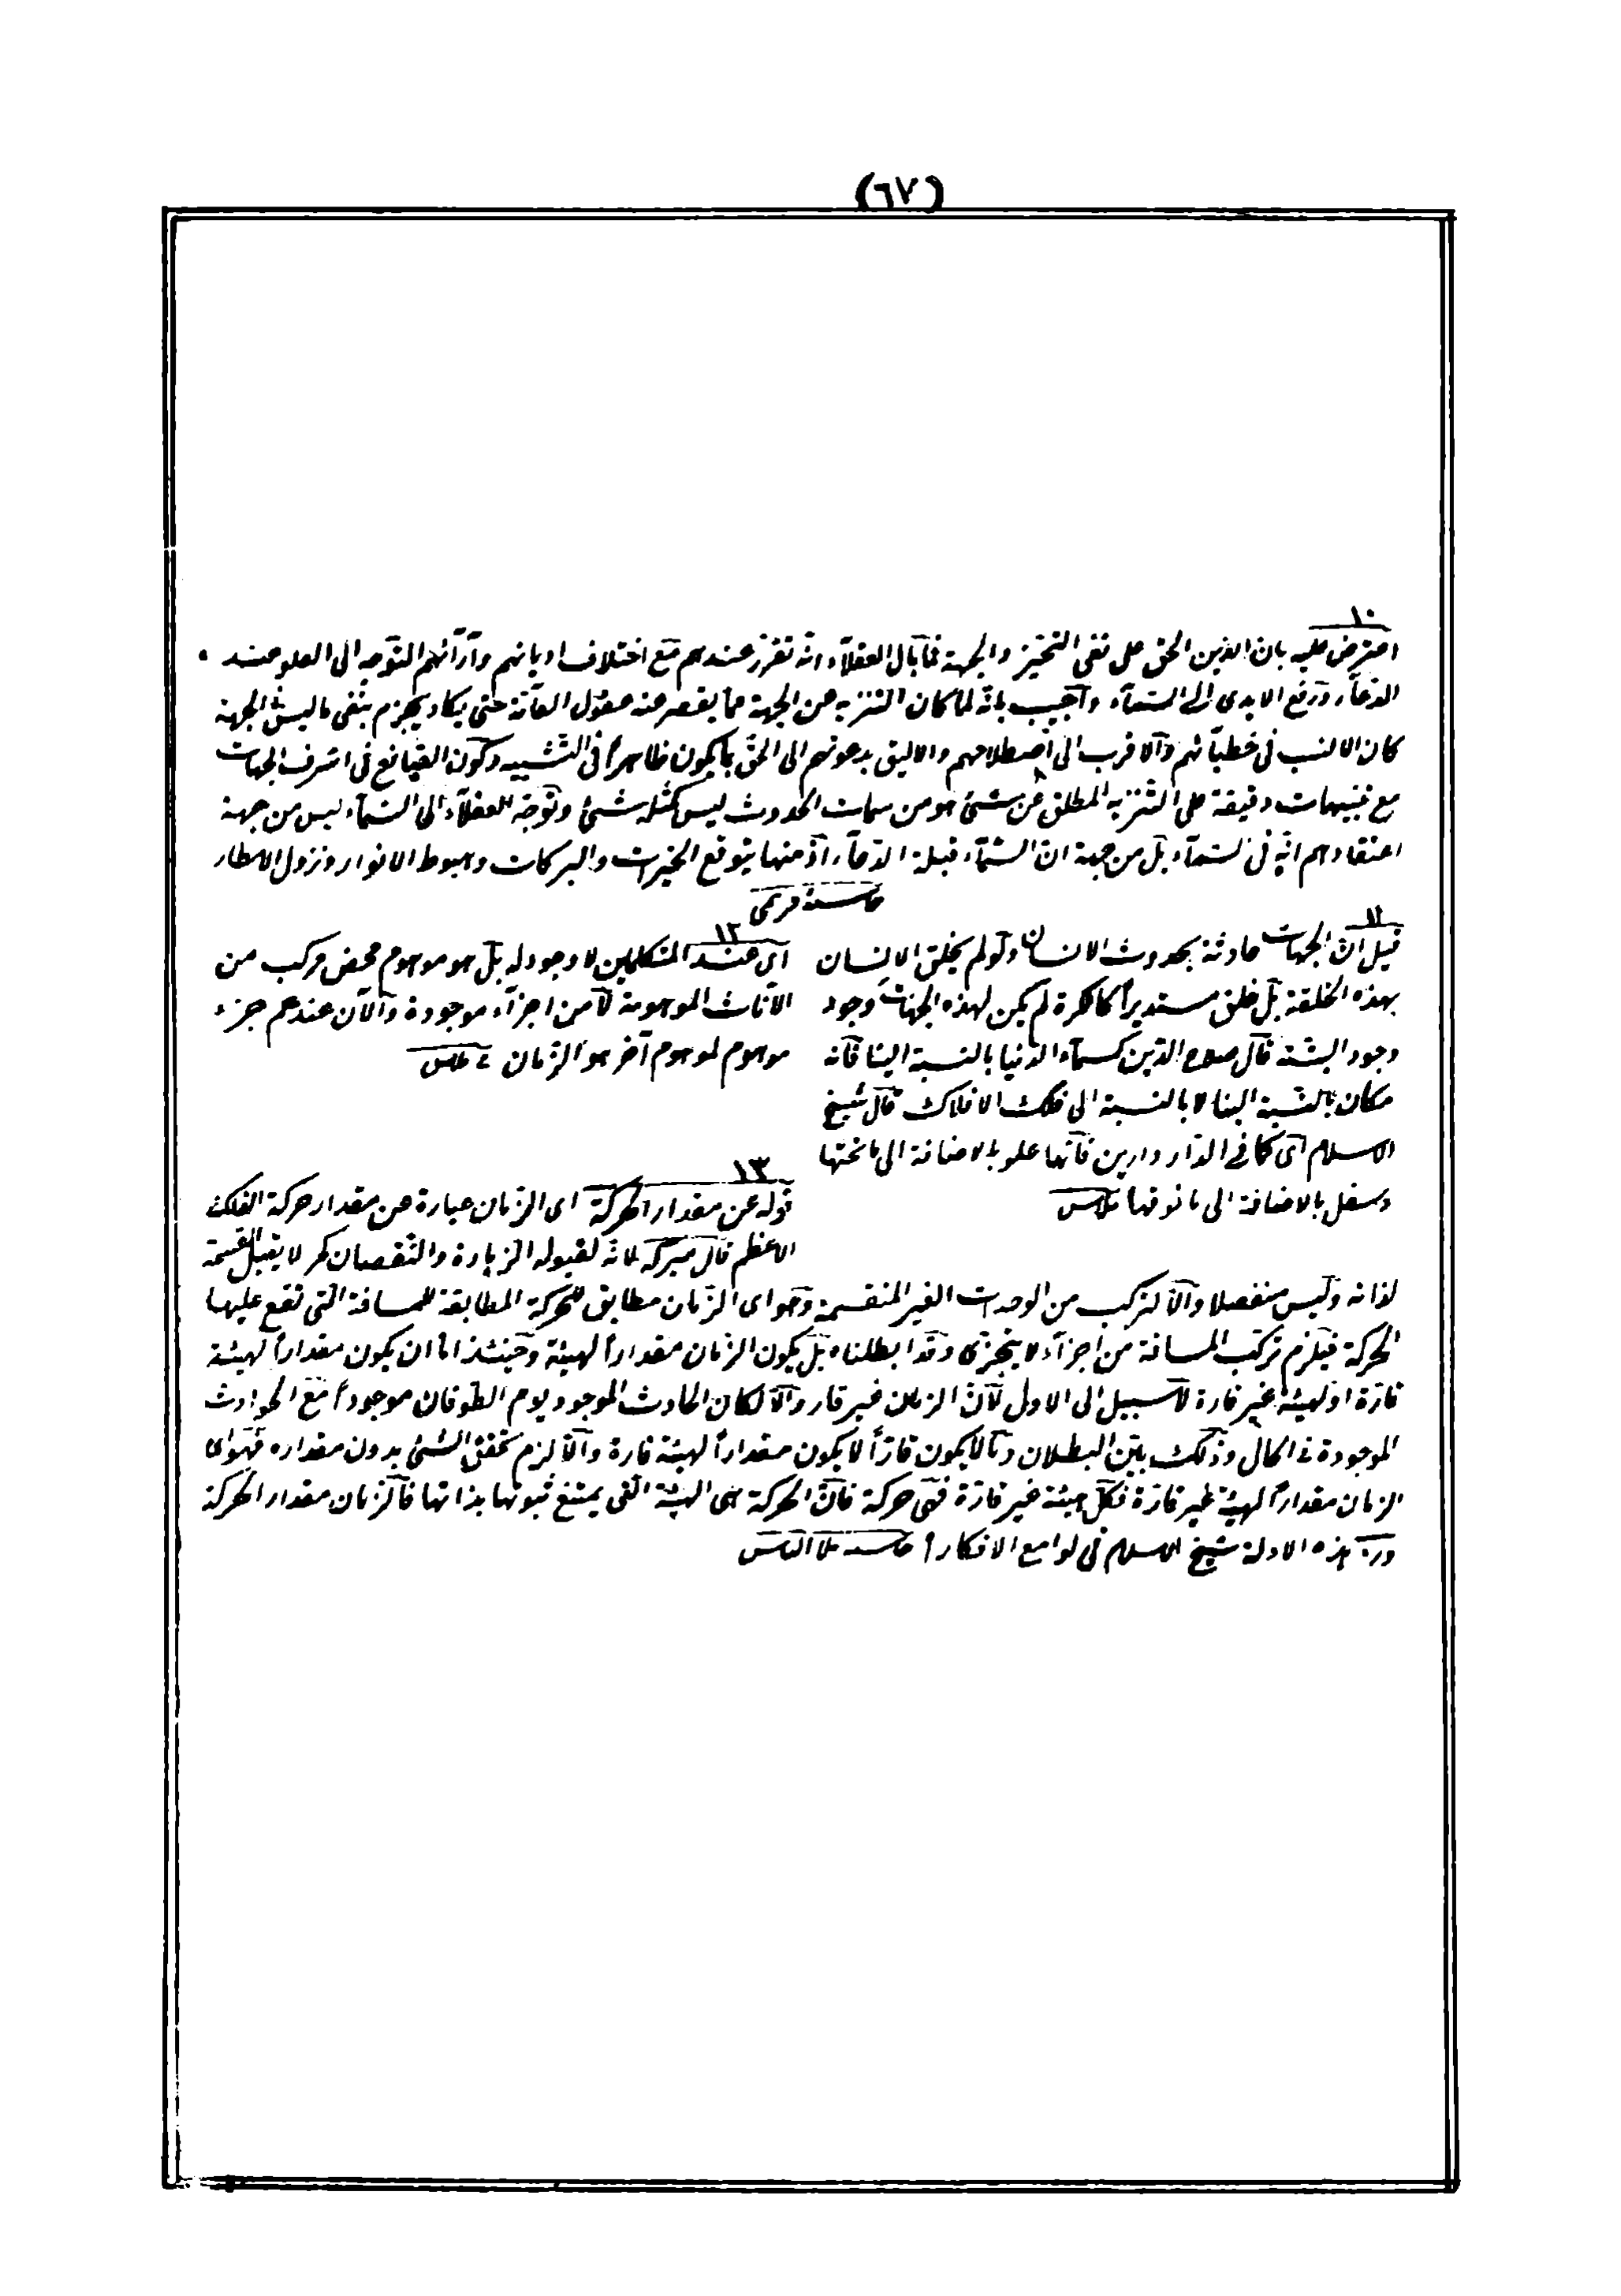 (٦٧)
١٠
اعترض عليه بان الدين الحق على نفى التحيز والجهة فما بال العقلاء انه تقرر عندهم مع اختلاف اديانهم وآرائهم التوجه الى العلو عند
الدعاء ورفع الايدى الى السماء واجيب بانه لما كان التنزيه عن الجهة مما يقصر عنه عقول العامة حتى يكاد يجزم بنفى ما ليس فى الجهة
كان الانسب فى خطباتهم والاقرب الى اصطلاحهم والاليق بدعوتهم الى الحق ما يكون ظاهرا فى التشبيه وكون الصانع فى اشرف الجهات
مع تنبيهات دقيقة على التنزيه المطلق عن شئ هو من سمات الحدوث ليس كمثله شئ وتوجه العقلاء الى السماء ليس من جهة
اعتقادهم انه فى السماء بل من جهة ان السماء قبلة الدعاء اذ منها يتوقع الخيرات والبركات وهبوط الانوار ونزول الامطار
١١
قيل ان الجهات حادثة بحدوث الانسان ولو لم يخلق الانسان
بهذه الخلقة بل خلق مستديرا كالكرة لم يكن لهذه الجهات وجود
وجود البتة قال صلاح الدين كسماء الدنيا بالنسبة الينا فانه
مكان بالنسبة الينا لا بالنسبة الى فلك الافلاك قال شيخ
الاسلام اى كما فى الدار دارين فانها علو بالاضافة الى ما تحتها
وسفل بالاضافة الى ما فوقها
١٢
اى عند المتكلمين لا وجود له بل هو موهوم محض مركب من
الآنات الموهومة لا من اجزاء موجودة والآن عندهم جزء
موهوم لموهوم آخر هو الزمان
١٣
قوله عن مقدار الحركة اى الزمان عبارة عن مقدار حركة الفلك
الاعظم قال ميرك لانه لقبوله الزيادة والنقصان كم لا يقبل القسمة
لذاته وليس منفصلا والا لتركب من الوحدات الغير المنقسمة وهو اى الزمان مطابق للحركة المطابقة للمسافة التى تقع عليها
الحركة فيلزم تركب المسافة من اجزاء لا يتجزى وقد ابطلناه بل يكون الزمان مقدارا لهيئة وحينئذ اما ان يكون مقدارا لهيئة
قارة او لهيئة غير قارة لا سبيل الى الاول لان الزمان غير قار والا لكان الحادث الموجود يوم الطوفان موجودا مع الحوادث
الموجودة فى الحال وذلك بين البطلان وما لا يكون قارا لا يكون مقدارا لهيئة قارة والا لزم تحقق الشئ بدون مقداره فهو اى
الزمان مقدار لهيئة غير قارة فكل هيئة غير قارة فهى حركة فان الحركة هى الهيئة التى يمتنع ثبوتها بذاتها فالزمان مقدار الحركة
هذه الادلة شيخ الاسلام فى لوامع الافكار